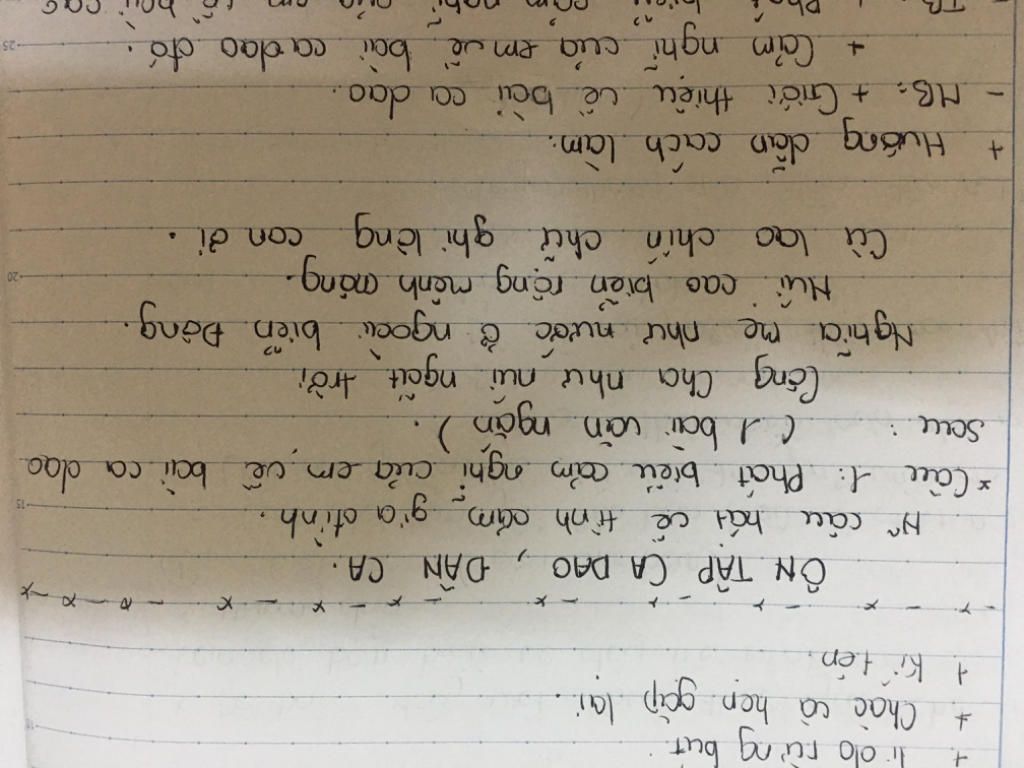 + lí do dừng bút
+ Chào và hẹn gặp lại.
+ Kí tên
ÔN TẬP CA DAO, DÂN CA.
N~ câu hát về tình cảm gia đình.
* Câu 1: Phát biểu cảm nghĩ của em về bài ca dao
sau: (1 bài văn ngắn).
Công cha như núi ngất trời
Nghĩa mẹ như nước ở ngoài biển Đông.
Núi cao biển rộng mênh mông.
Cù lao chín chữ ghi lòng con ơi.
+ Hướng dẫn cách làm.
- MB: + Giới thiệu về bài ca dao.
+ Cảm nghĩ của em về bài ca dao đó.
- TB: + Phát biểu cảm nghĩ của em về bài cao